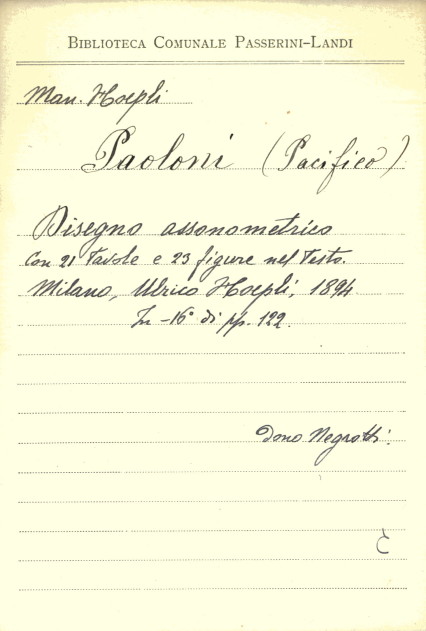 BIBLIOTECA COMUNALE PASSERINI-LANDI
Man. Hoepli
Paoloni (Pacifico)
Disegno assonometrico
con 21 tavole e 23 figure nel testo.
Milano, Ulrico Hoepli, 1894
In -16° di pp. 122.
Dono Negrotti.